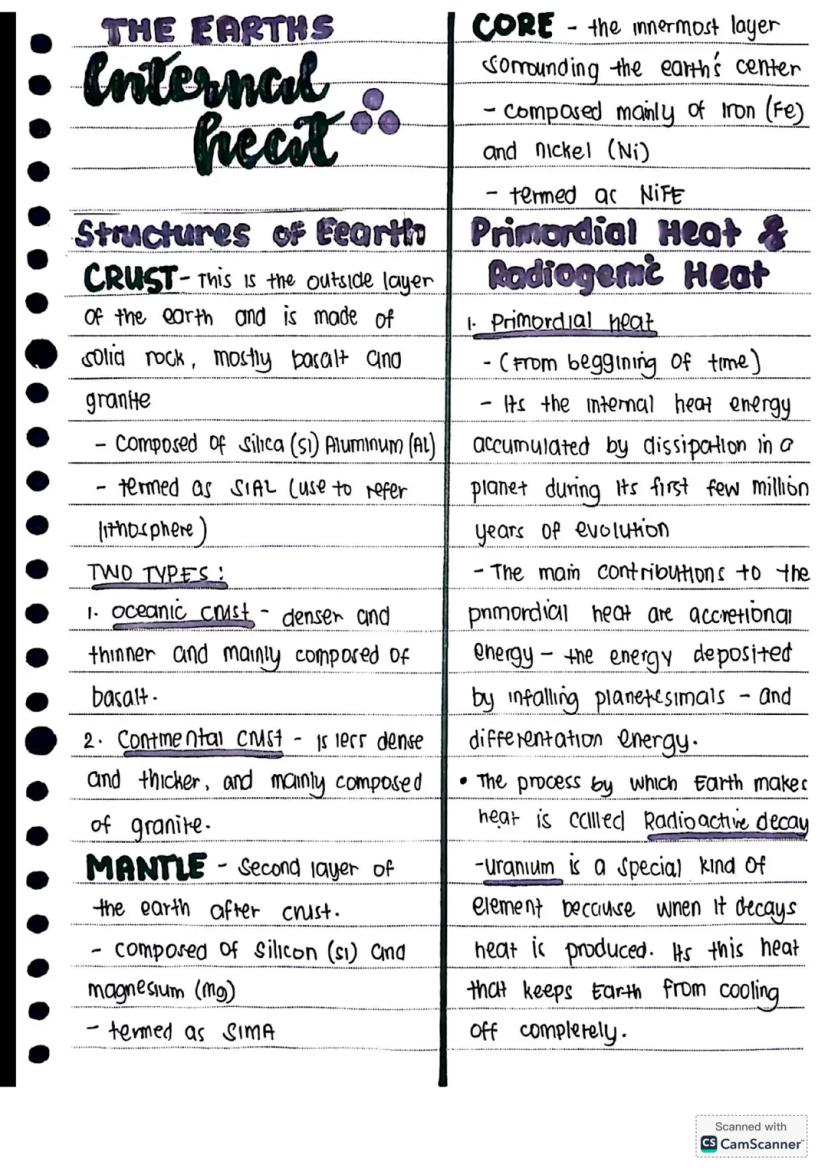 THE EARTHS
Internal
heat
Structures of Eearth
CRUST - This is the outside layer
of the earth and is made of
solid rock, mostly basalt and
granite
- Composed of Silica (Si) Aluminum (AL)
- termed as SIAL (use to refer
lithosphere)
TWO TYPES:
1. oceanic crust - denser and
thinner and mainly composed of
basalt.
2. Continental crust - is less dense
and thicker, and mainly composed
of granite.
MANTLE - Second layer of
the earth after crust.
- composed of Silicon (si) and
magnesium (Mg)
- termed as SIMA
CORE - the innermost layer
sorrounding the earth's center
- composed mainly of Iron (Fe)
and nickel (Ni)
- termed as NiFE
Primordial Heat &
Radiogenic Heat
1. Primordial heat
- (From beggining of time)
- Its the internal heat energy
accumulated by dissipation in a
planet during its first few million
years of evolution
- The main contributions to the
primordial heat are accretional
energy - the energy deposited
by infalling planetesimals - and
differentation energy.
• The process by which Earth makes
heat is called Radioactive decay
- uranium is a special kind of
element because when it decays
heat is produced. Its this heat
that keeps Earth from cooling
off completely.
Scanned with
CS CamScanner